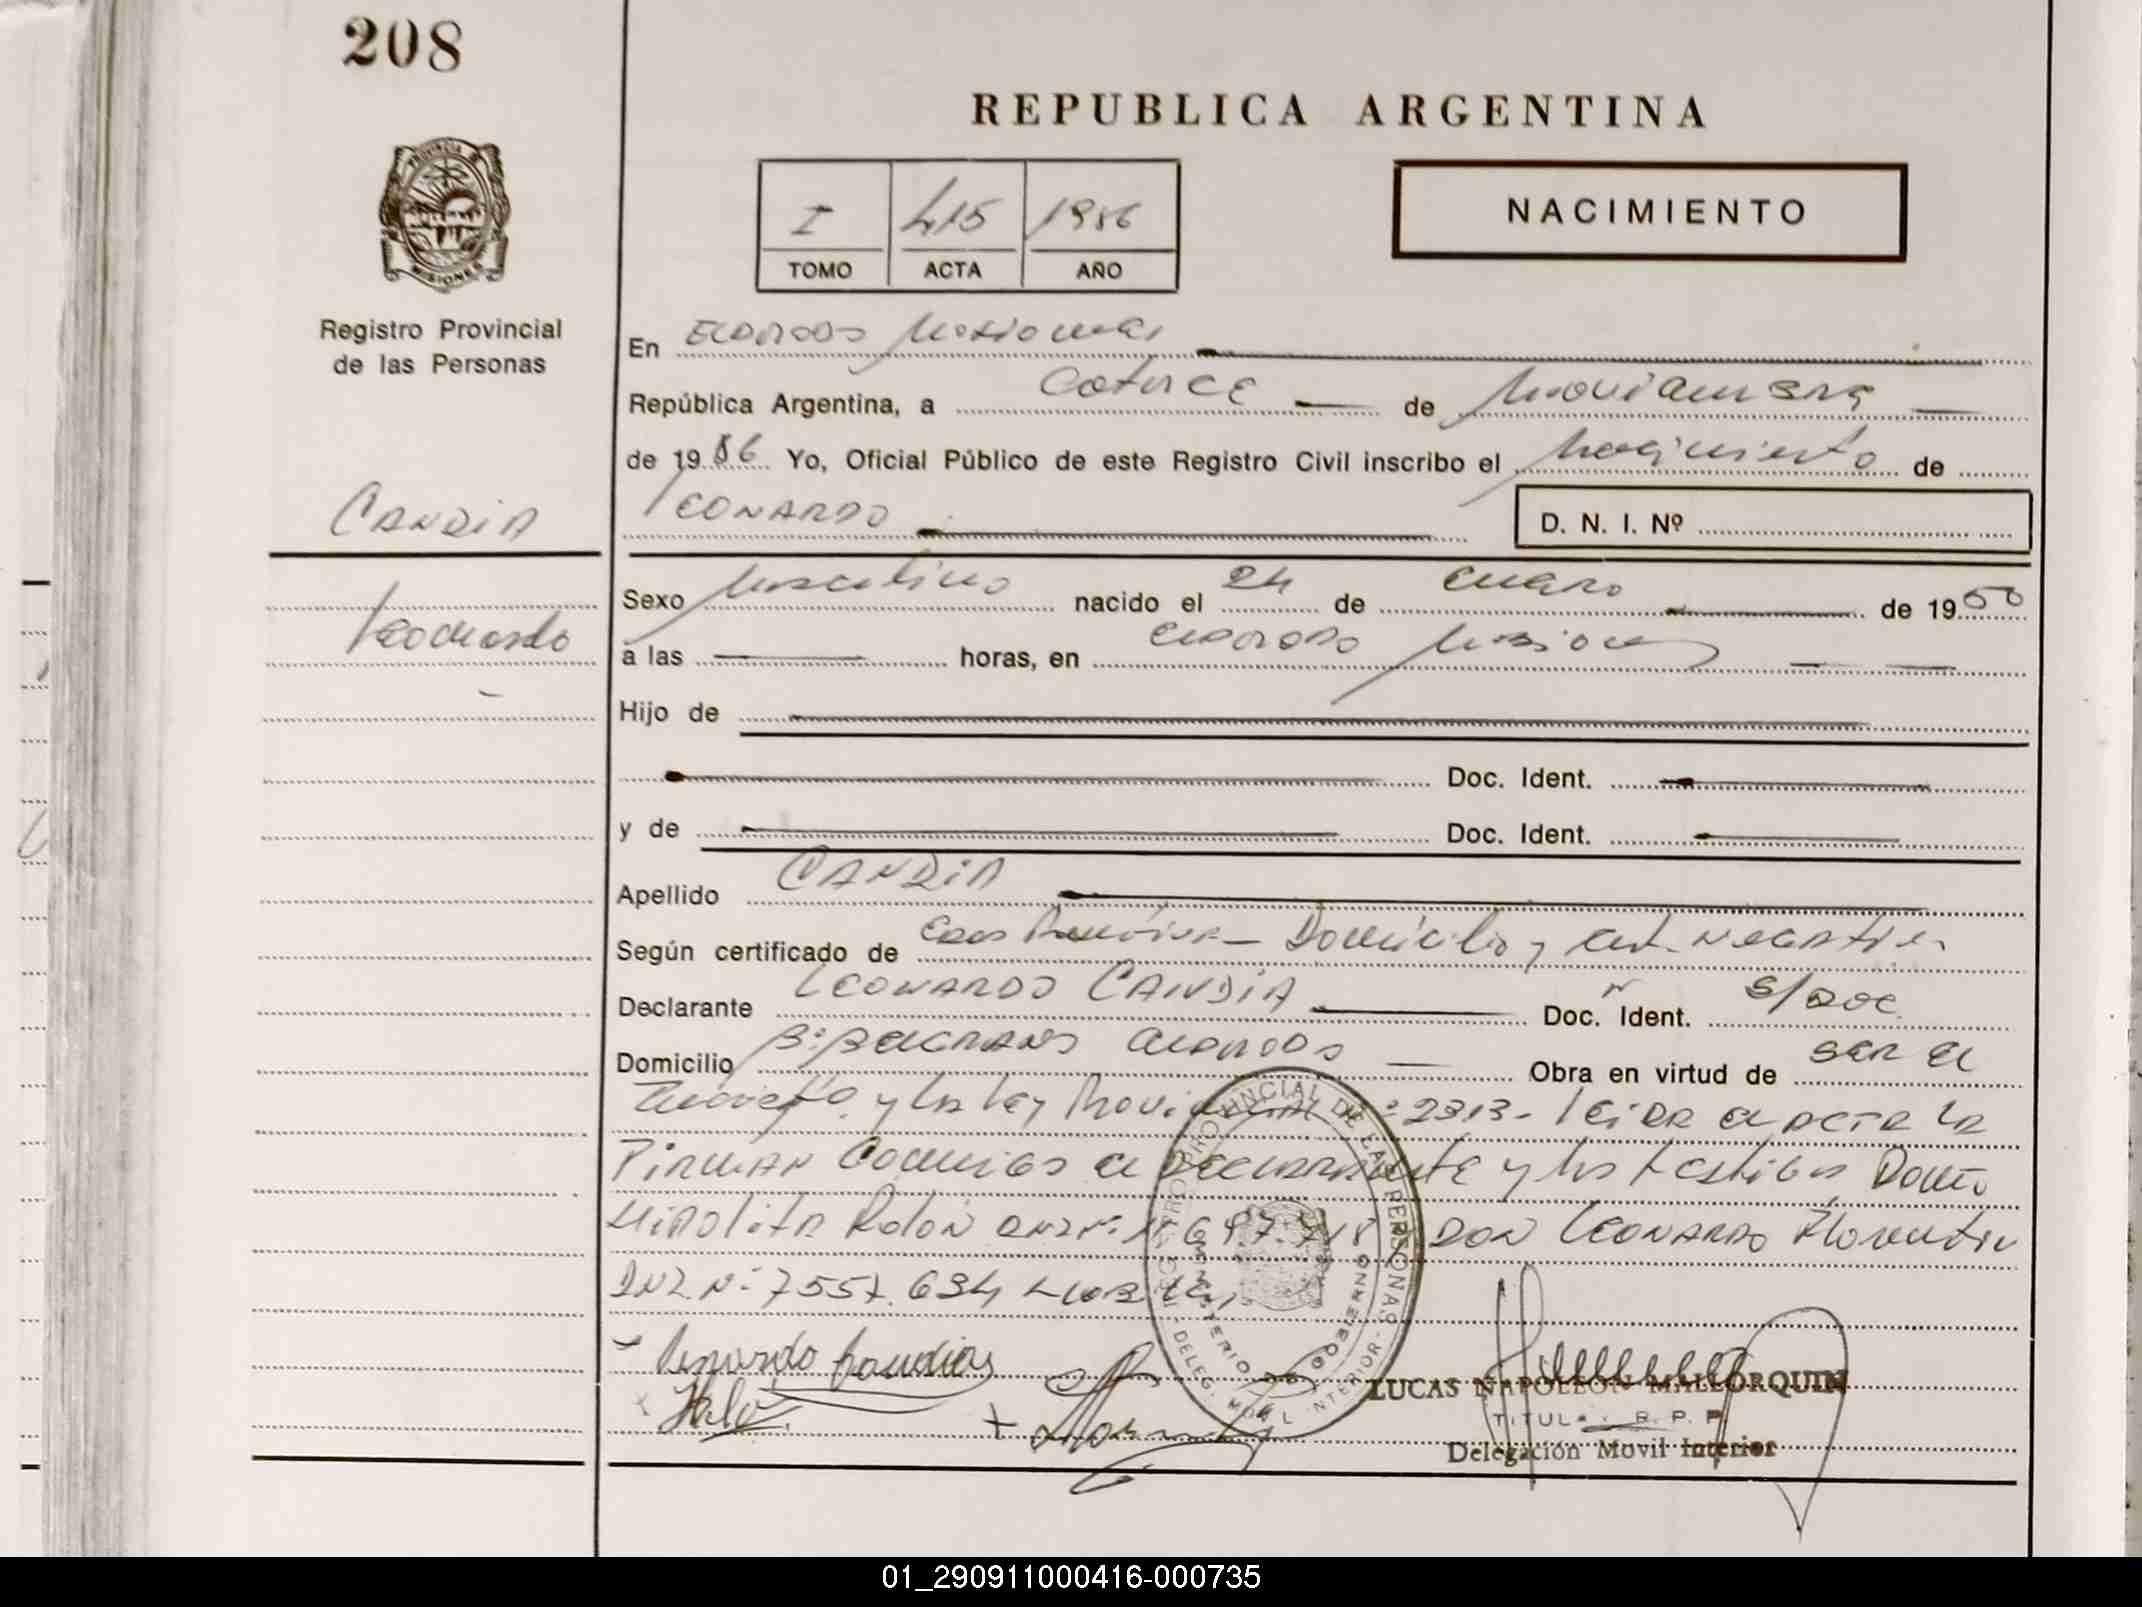 208
REPUBLICA ARGENTINA
PROVINCIA DE MISIONES
I 415 1986
TOMO ACTA AÑO
NACIMIENTO
Registro Provincial
de las Personas
En ELDORADO Misiones
República Argentina, a Catorce de Noviembre
de 1986 Yo, Oficial Público de este Registro Civil inscribo el Nacimiento de
LEONARDO
D. N. I. Nº
CANDIA
Leonardo
Sexo Masculino nacido el 24 de enero de 19
a las horas, en ELDORADO Misiones
Hijo de
Doc. Ident.
y de Doc. Ident.
Apellido CANDIA
Según certificado de Domicilio y NEGATIVA
Declarante LEONARDO CANDIA Doc. Ident. S/DOC
Domicilio Bº BELGRANO ELDORADO Obra en virtud de SER EL
y la Ley Provincial Nº 2313 - LEIDA EL ACTA LA
FIRMAN Conmigo el DECLARANTE y los testigos Doña
HIPOLITA Rolón DON LEONARDO Florentin
DNI Nº 7557.634
REGISTRO PROVINCIAL DE LAS PERSONAS
MINISTERIO DE GOBIERNO
DELEG. MOVIL INTERIOR
LUCAS NAPOLEON MALLORQUIN
TITULAR R. P. P.
Delegación Movil Interior
01_290911000416-000735